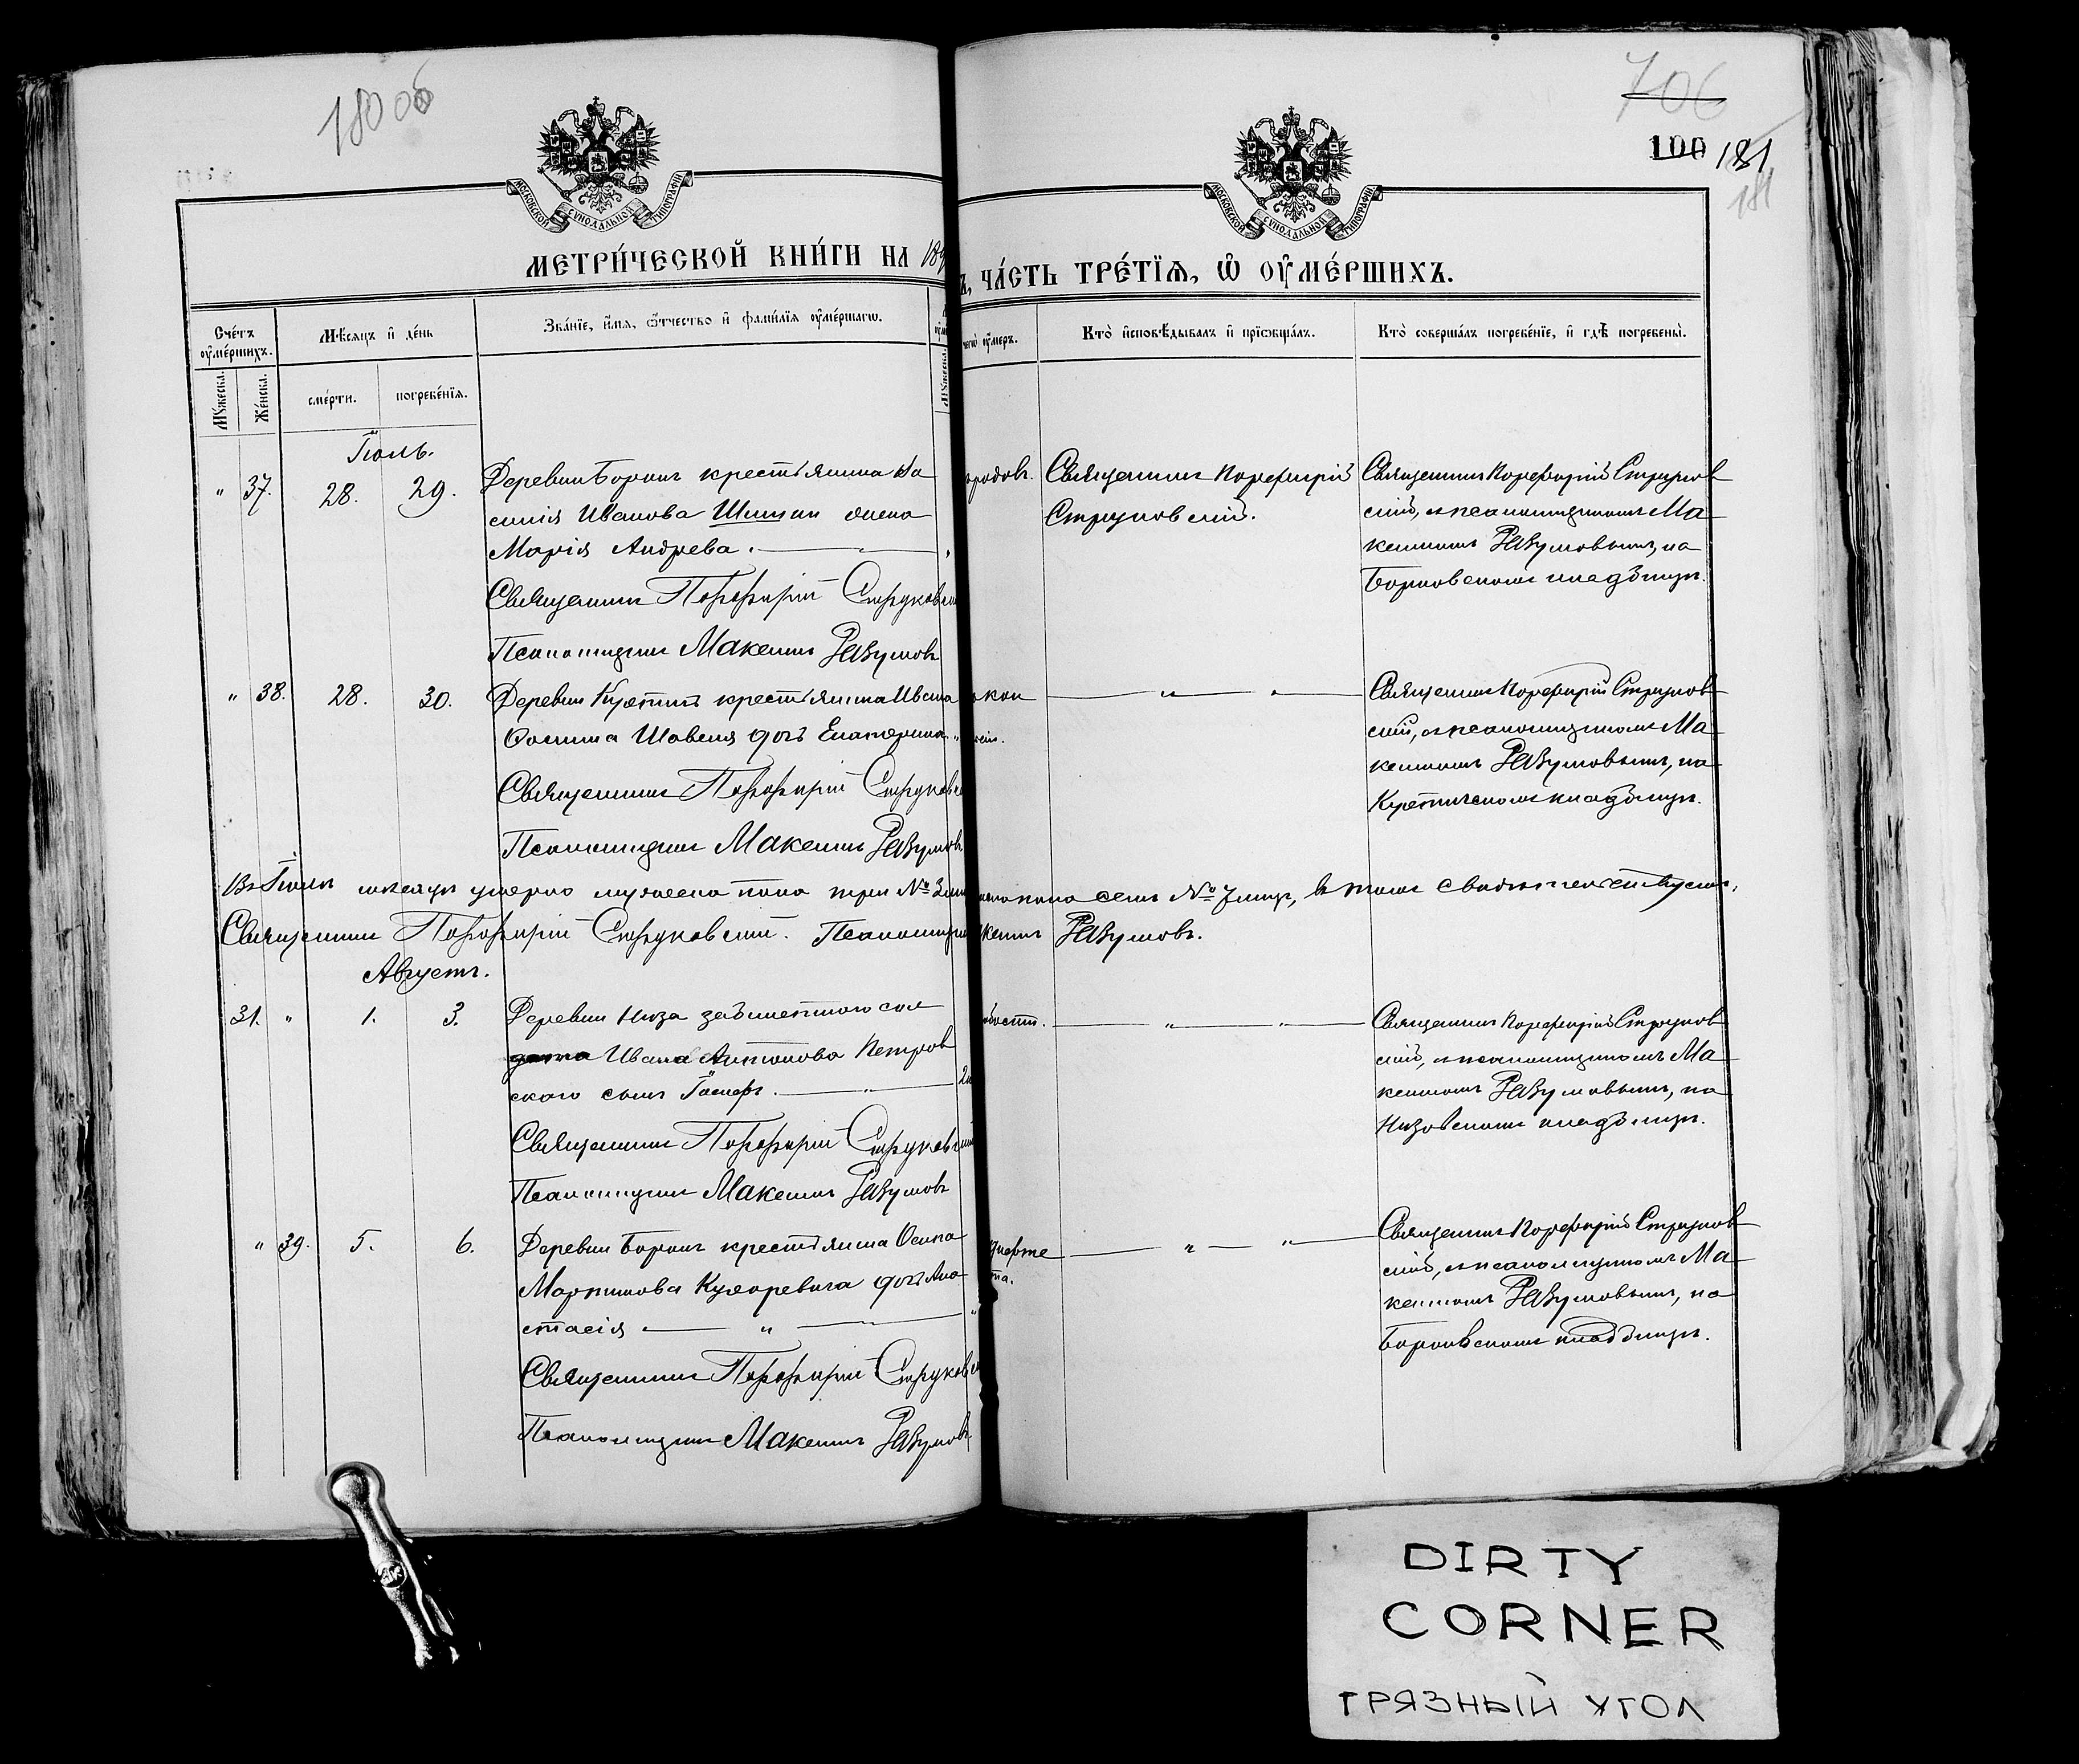 18006
706
100 181
181
МОСКОВСКОЙ СѴНОДАЛЬНОЙ ТИПОГРАФІИ
МОСКОВСКОЙ СѴНОДАЛЬНОЙ ТИПОГРАФІИ
МЕТРИ́ЧЕСКОЙ КНИ́ГИ НА 189
Ъ, ЧА́СТЬ ТРЕ́ТЇѦ, Ѡ҆ ОУ҆МЕ́РШИХЪ.
Сче́тъ оу҆ме́ршихъ.
Мѣ́сяцъ и҆ де́нь
Зва́нїе, и҆́мя, ѻ҆́тчество и҆ фами́лїя оу҆ме́ршагѡ.
чегѡ̀ оу҆́меръ.
Кто̀ и҆сповѣ́дывалъ и҆ прїѡбща́лъ.
Кто̀ соверша́лъ погребе́нїе, и҆ гдѣ̀ погребены̀.
Мꙋ́жеска.
Же́нска.
сме́рти.
погребе́нїя.
Мꙋ́жеска.
Іюль.
" 37. 28. 29. Деревни Борокъ крестьянина Ва
силія Иванова Шишки жена
Марія Андрева.
Священникъ Порфирій Струковскій
Псаломщикъ Максимъ Разумовъ
родовъ.
Священникъ Порфирій
Струковскій.
Священникъ Порфирій Струков
скій, съ псаломщикомъ Ма
ксимомъ Разумовымъ, на
Борковскомъ кладбищѣ.
" 38. 28. 30. Деревни Курепичъ крестьянина Ивана
Осипова Шавеля дочь Екатерина "
Священникъ Порфирій Струковс
Псаломщикъ Максимъ Разумовъ
Священникъ Порфирій Струков
скій, съ псаломщикомъ Ма
ксимомъ Разумовымъ, на
кладбищѣ.
Въ Іюлѣ мѣсяцѣ умерло мужеска пола три № 3
пола семь № 7 лицъ, въ томъ свидѣтельствуемъ,
Священникъ Порфирій Струковскій. Псаломщик
ксимъ Разумовъ.
Августъ.
31. " 1. 3. Деревни Низа забилетнаго сол
дата Ивана Антонова Петров
скаго сынъ Іосифъ.
Священникъ Порфирій Струковскій
Псаломщикъ Максимъ Разумовъ
Священникъ Порфирій Струков
скій, съ псаломщикомъ Ма
ксимомъ Разумовымъ, на
Низовскомъ кладбищѣ.
" 39. 5. 6. Деревни Борокъ крестьянина Осипа
Мартинова Кухаревича дочь Ана
стасія
Священникъ Порфирій Струковс
Псаломщикъ Максимъ Разумовъ
Священникъ Порфирій Струков
скій, съ псаломщикомъ Ма
ксимомъ Разумовымъ, на
Борковскомъ кладбищѣ.
DIRTY
CORNER
ГРЯЗНЫЙ УГОЛ